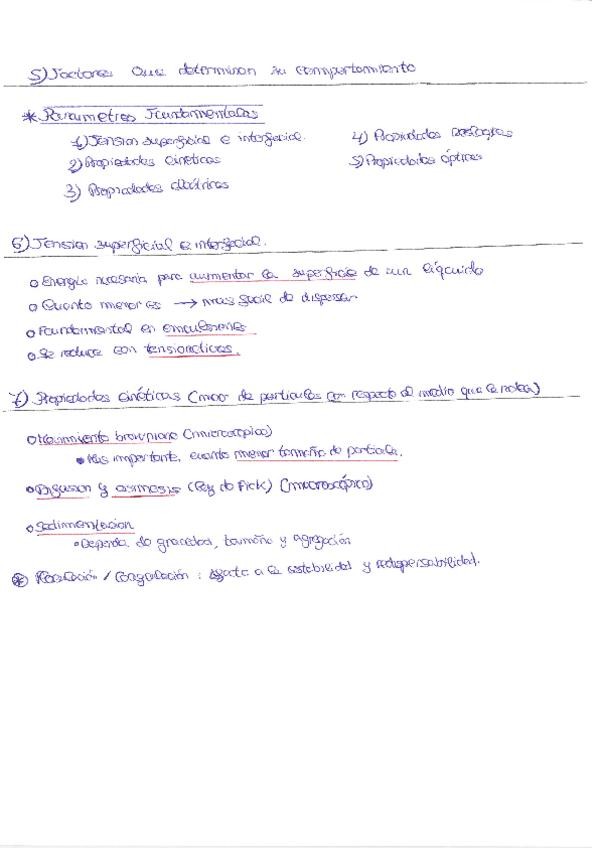 5) Factores que determinan su comportamiento
* Parametros Fundamentales
1) Tension superficial e interfacial.
2) Propiedades cinéticas
3) Propiedades eléctricas
4) Propiedades reológicas
5) Propiedades ópticas
6) Tension superficial e interfacial.
o Energía necesaria para aumentar la superficie de un líquido
o Cuanto menor es → mas facil de dispersar
o Fundamental en emulsiones
o Se reduce con tensioactivos.
7) Propiedades cinéticas (mov de particulas con respecto al medio que le rodea)
o Movimiento browniano (microscópico)
• Mas importante, cuanto menor tamaño de particula.
• Difusion y osmosis (Ley de Fick) (macroscópico)
o Sedimentacion
• Depende de gravedad, tamaño y agregación
* Floculación / Coagulación : afecta a la estabilidad y redispersabilidad.